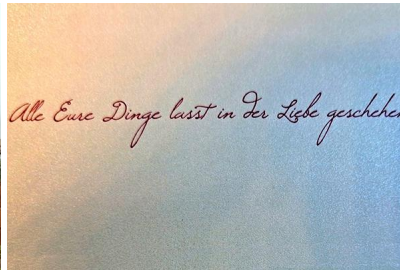 Alle Eure Dinge lasst in der Liebe geschehen